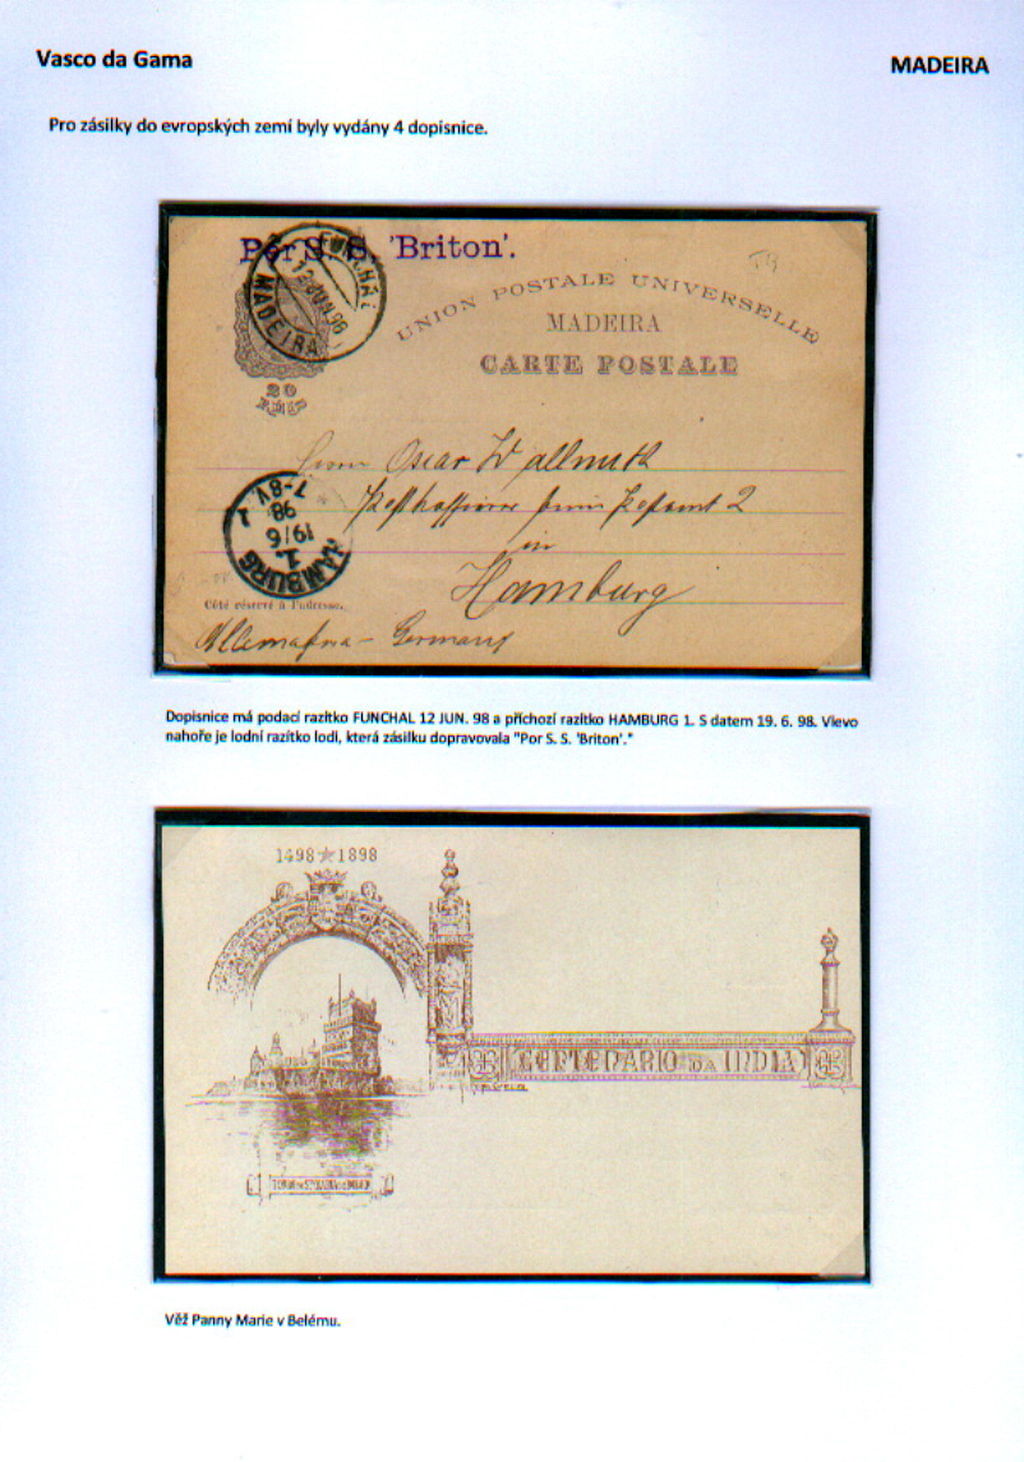 Vasco da Gama
MADEIRA
Pro zásilky do evropských zemí byly vydány 4 dopisnice.
Por S. S. 'Briton'.
FUNCHAL
12 JUN 98
MADEIRA
UNION POSTALE UNIVERSELLE
MADEIRA
CARTE POSTALE
20
RÉIS
Herrn Oscar Wallmuth
Postamt 2
in
Hamburg
HAMBURG
1.
19/6
98
7-8V.
1
Côté réservé à l'adresse.
Allemagna - Germany
Dopisnice má podací razítko FUNCHAL 12 JUN. 98 a příchozí razítko HAMBURG 1. S datem 19. 6. 98. Vlevo
nahoře je lodní razítko lodi, která zásilku dopravovala "Por S. S. 'Briton'."
1498 ★ 1898
CENTENARIO DA INDIA
Věž Panny Marie v Belému.